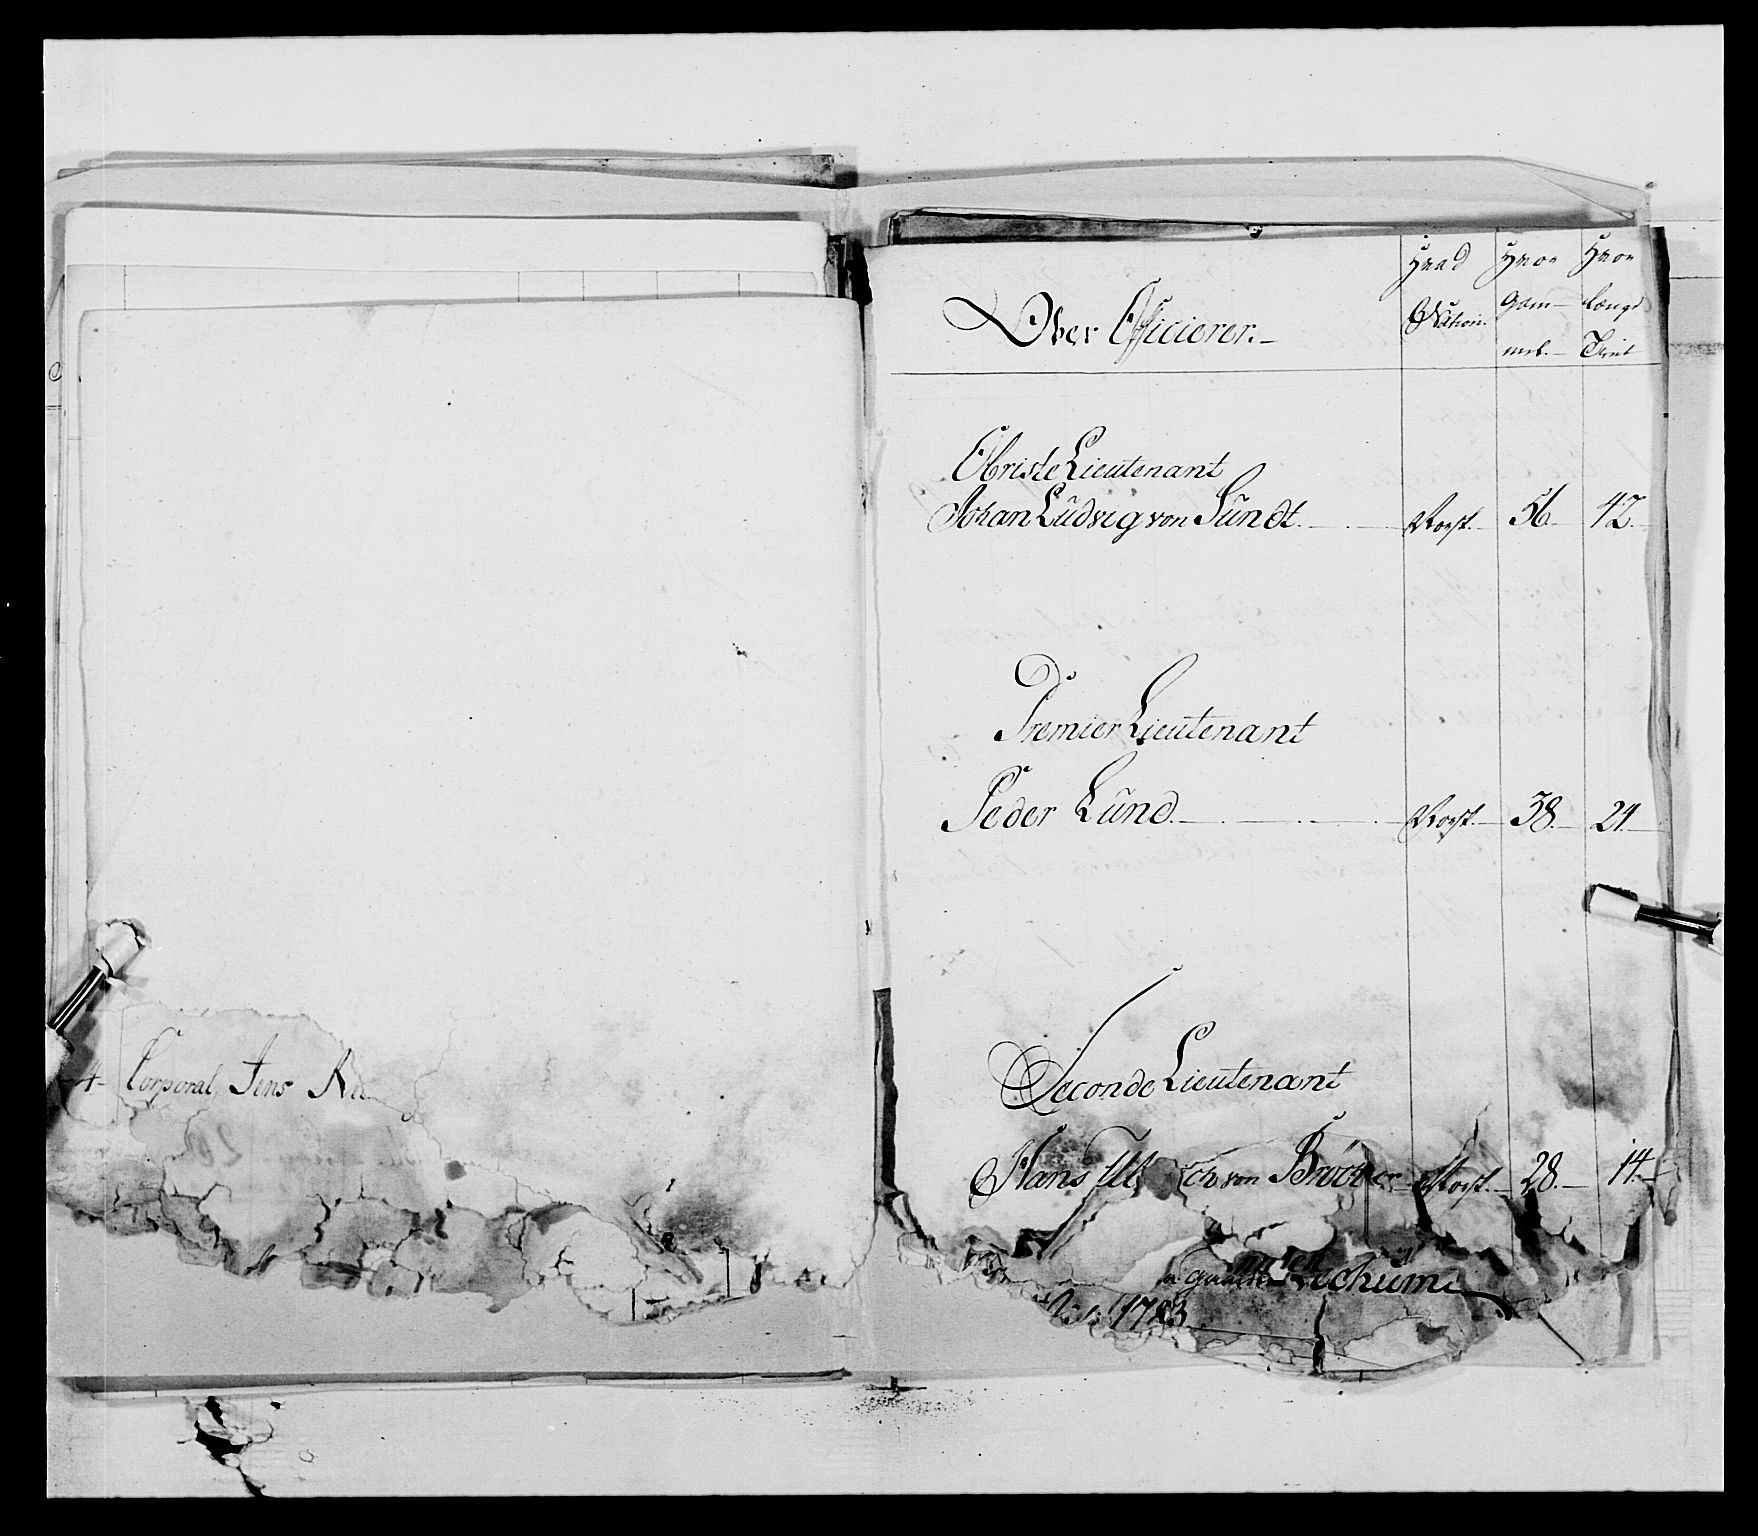 4. Corporal Jens
Over Officierer.
Hvad Nation.
Hvor Gam-mel.
Hvor længe Tient
Obriste Lieutenant
Johan Ludvig von Sundt. Norsk. 56. 42.
Premier Lieutenant
Peder Lund. Norsk. 38. 21.
Seconde Lieutenant
Hans von Norsk. 28. 14.
1783